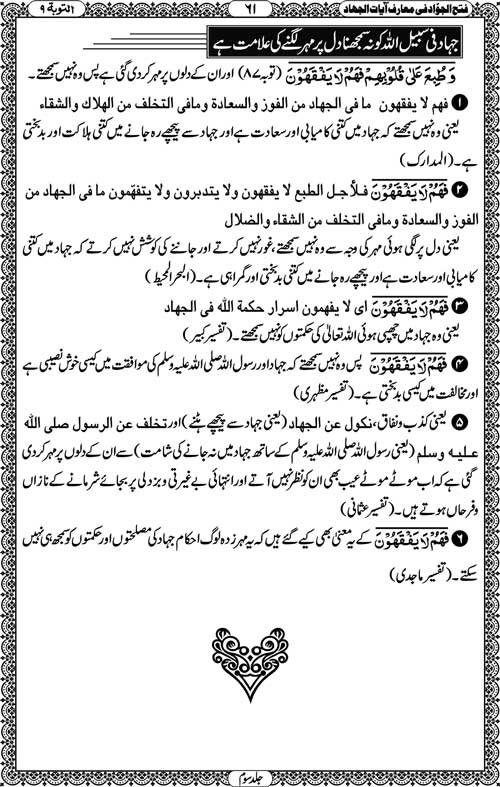 فتح الجوّاد فی معارف آیات الجهاد
۶۱
التوبة ۹
جہاد فی سبیل اللہ کو نہ سمجھنا دل پر مہر لگنے کی علامت ہے
وَطُبِعَ عَلٰی قُلُوْبِهِمْ فَهُمْ لَا يَفْقَهُوْنَ (توبہ ۸۷) اور ان کے دلوں پر مہر کر دی گئی ہے پس وہ نہیں سمجھتے۔
۱ فهم لا يفقهون ما فی الجهاد من الفوز والسعادة ومافی التخلف من الهلاك والشقاء
یعنی وہ نہیں سمجھتے کہ جہاد میں کتنی کامیابی اور سعادت ہے اور جہاد سے پیچھے رہ جانے میں کتنی ہلاکت اور بدبختی
ہے۔ (المدارک)
۲ فَهُمْ لَا يَفْقَهُوْنَ فلأجل الطبع لا يفقهون ولا يتدبرون ولا يتفهّمون ما فی الجهاد من
الفوز والسعادة ومافی التخلف من الشقاء والضلال
یعنی دل پر لگی ہوئی مہر کی وجہ سے وہ نہیں سمجھتے، غور نہیں کرتے اور جاننے کی کوشش نہیں کرتے کہ جہاد میں کتنی
کامیابی اور سعادت ہے اور پیچھے رہ جانے میں کتنی بدبختی اور گمراہی ہے۔ (البحر المحیط)
۳ فَهُمْ لَا يَفْقَهُوْنَ ای لا يفهمون اسرار حكمة الله فی الجهاد
یعنی وہ جہاد میں چھپی ہوئی اللہ تعالیٰ کی حکمتوں کو نہیں سمجھتے۔ (تفسیر کبیر)
۴ فَهُمْ لَا يَفْقَهُوْنَ پس وہ نہیں سمجھتے کہ جہاد اور رسول اللہ صلی اللہ علیہ وسلم کی موافقت میں کیسی خوش نصیبی ہے
اور مخالفت میں کیسی بدبختی ہے۔ (تفسیر مظہری)
۵ یعنی کذب ونفاق، نکول عن الجهاد (یعنی جہاد سے پیچھے ہٹنے) اور تخلف عن الرسول صلی الله
علیه وسلم (یعنی رسول اللہ صلی اللہ علیہ وسلم کے ساتھ جہاد میں نہ جانے کی شامت) سے ان کے دلوں پر مہر کر دی
گئی ہے کہ اب موٹے موٹے عیب بھی ان کو نظر نہیں آتے اور انتہائی بے غیرتی و بزدلی پر بجائے شرمانے کے نازاں
و فرحاں ہوتے ہیں۔ (تفسیر عثمانی)
۶ فَهُمْ لَا يَفْقَهُوْنَ کے یہ معنی بھی کیے گئے ہیں کہ یہ مہر زدہ لوگ احکام جہاد کی مصلحتوں اور حکمتوں کو سمجھ ہی نہیں
سکتے۔ (تفسیر ماجدی)
جلد سوم